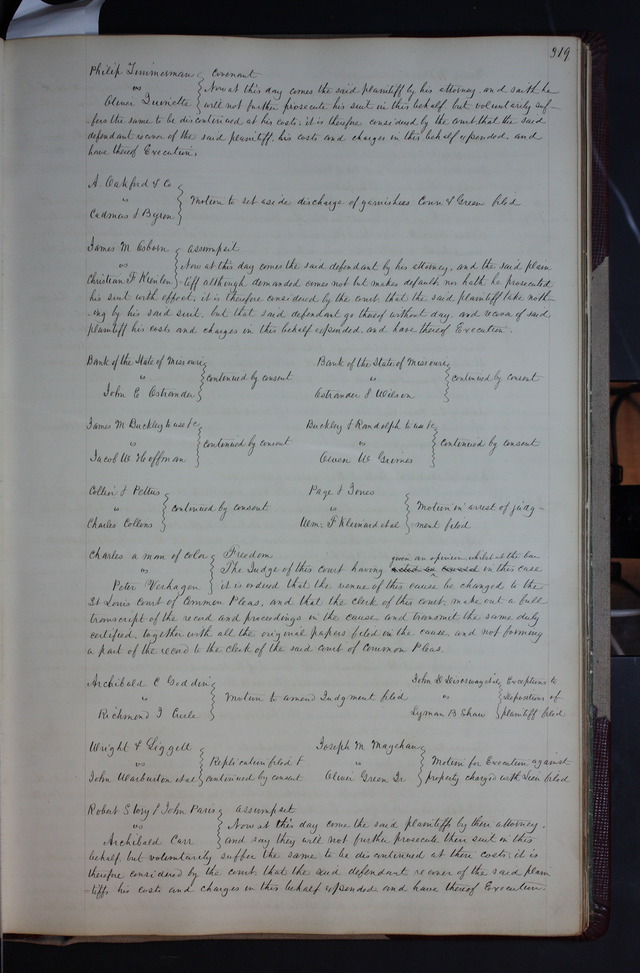 319
Philip Timmerman } Covenant
vs } Now at this day comes the said plaintiff by his attorney, and saith he
Oliver } will not further prosecute his suit in this behalf, but voluntarily suf-
fers the same to be discontinued at his costs; it is therefore considered by the court that the said
defendant recover of the said plaintiff, his costs and charges in this behalf expended, and
have thereof Execution.
A. Oakford & Co
vs } Motion to set aside discharge of garnishees Conn & Green filed
Cadmus & Byron
James M. Osborn } assumpsit
vs } Now at this day comes the said defendant by his attorney, and the said plain
Christian F. Kienlen } tiff although demanded comes not but makes default, nor hath he prosecuted
his suit with effect, it is therefore considered by the court, that the said plaintiff take noth-
ing by his said suit, but that said defendant go thereof without day, and recover of said
plaintiff his costs and charges in this behalf expended, and have thereof Execution.
Bank of the State of Missouri
vs } continued by consent
John C Ostrander
Bank of the State of Missouri
vs } continued by consent
Ostrander & Wilson
James M Buckley to use &c
vs } continued by consent
Jacob W Hoffman
Buckley & Randolph to use &c
vs } continued by consent
Owen W Grimes
Collier & Pettus
vs } continued by consent
Charles Collens
Page & Jones } Motion in arrest of judg-
vs } ment filed
Wm. F et al
Charles a man of color } Freedom given an opinion whilst at the bar
vs } The Judge of this court having in this case
Peter Verhagen } it is ordered that the venue of this cause be changed to the
St Louis Court of Common Pleas, and that the clerk of this court, make out a full
transcript of the record and proceedings in the cause, and transmit the same duly
certified, together with all the original papers filed in the cause, and not forming
a part of the record to the clerk of the said court of Common Pleas.
Archibald C Goddin
vs } Motion to amend Judgment filed
Richmond J Curle
John D } Exceptions to
vs } depositions of
Lyman B Shaw } plaintiff filed
Wright & Liggett
vs } Replication filed &
John Warburton et al } continued by consent
Joseph M. Maychan
vs } Motion for Execution against
Oliver Green Jr } property charged with Lien filed
Robert Story & John Paris } assumpsit
vs } Now at this day come the said plaintiffs by their attorney,
Archibald Carr } and say they will not further prosecute their suit in this
behalf, but voluntarily suffer the same to be discontinued at their costs; it is
therefore considered by the court that the said defendant recover of the said plain
tiffs his costs and charges in this behalf expended and have thereof Execution.